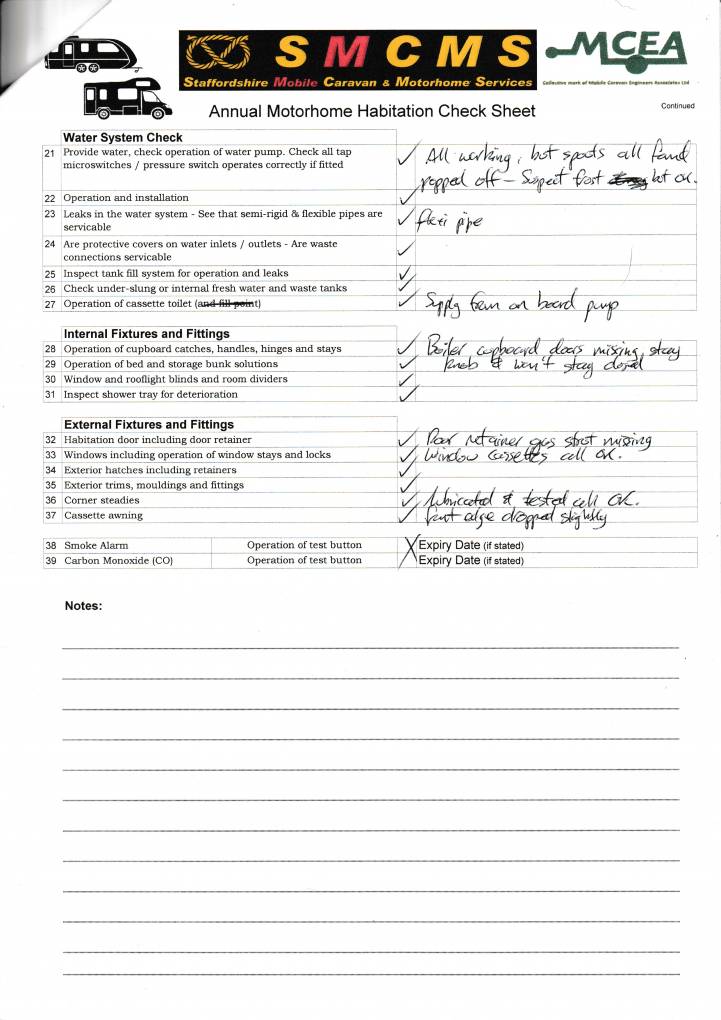 SMCMS
Staffordshire Mobile Caravan & Motorhome Services
MCEA
Collective mark of Mobile Caravan Engineers Association Ltd
Annual Motorhome Habitation Check Sheet
Continued
Water System Check
21 Provide water, check operation of water pump. Check all tap ✓ All working, but spouts all found
microswitches / pressure switch operates correctly if fitted popped off – Suspect frost but ok.
22 Operation and installation ✓
23 Leaks in the water system - See that semi-rigid & flexible pipes are ✓ flexi pipe
servicable
24 Are protective covers on water inlets / outlets - Are waste ✓
connections servicable
25 Inspect tank fill system for operation and leaks ✓
26 Check under-slung or internal fresh water and waste tanks ✓
27 Operation of cassette toilet (and fill point) ✓ Supply from on board pump
Internal Fixtures and Fittings
28 Operation of cupboard catches, handles, hinges and stays ✓ Boiler cupboard doors missing stay
29 Operation of bed and storage bunk solutions ✓ knob & won't stay closed
30 Window and rooflight blinds and room dividers ✓
31 Inspect shower tray for deterioration ✓
External Fixtures and Fittings
32 Habitation door including door retainer ✓ Door retainer gas strut missing
33 Windows including operation of window stays and locks ✓ Window cassettes all OK.
34 Exterior hatches including retainers ✓
35 Exterior trims, mouldings and fittings ✓
36 Corner steadies ✓ lubricated & tested all OK.
37 Cassette awning ✓ front edge dropped slightly
38 Smoke Alarm Operation of test button X Expiry Date (if stated)
39 Carbon Monoxide (CO) Operation of test button Expiry Date (if stated)
Notes: